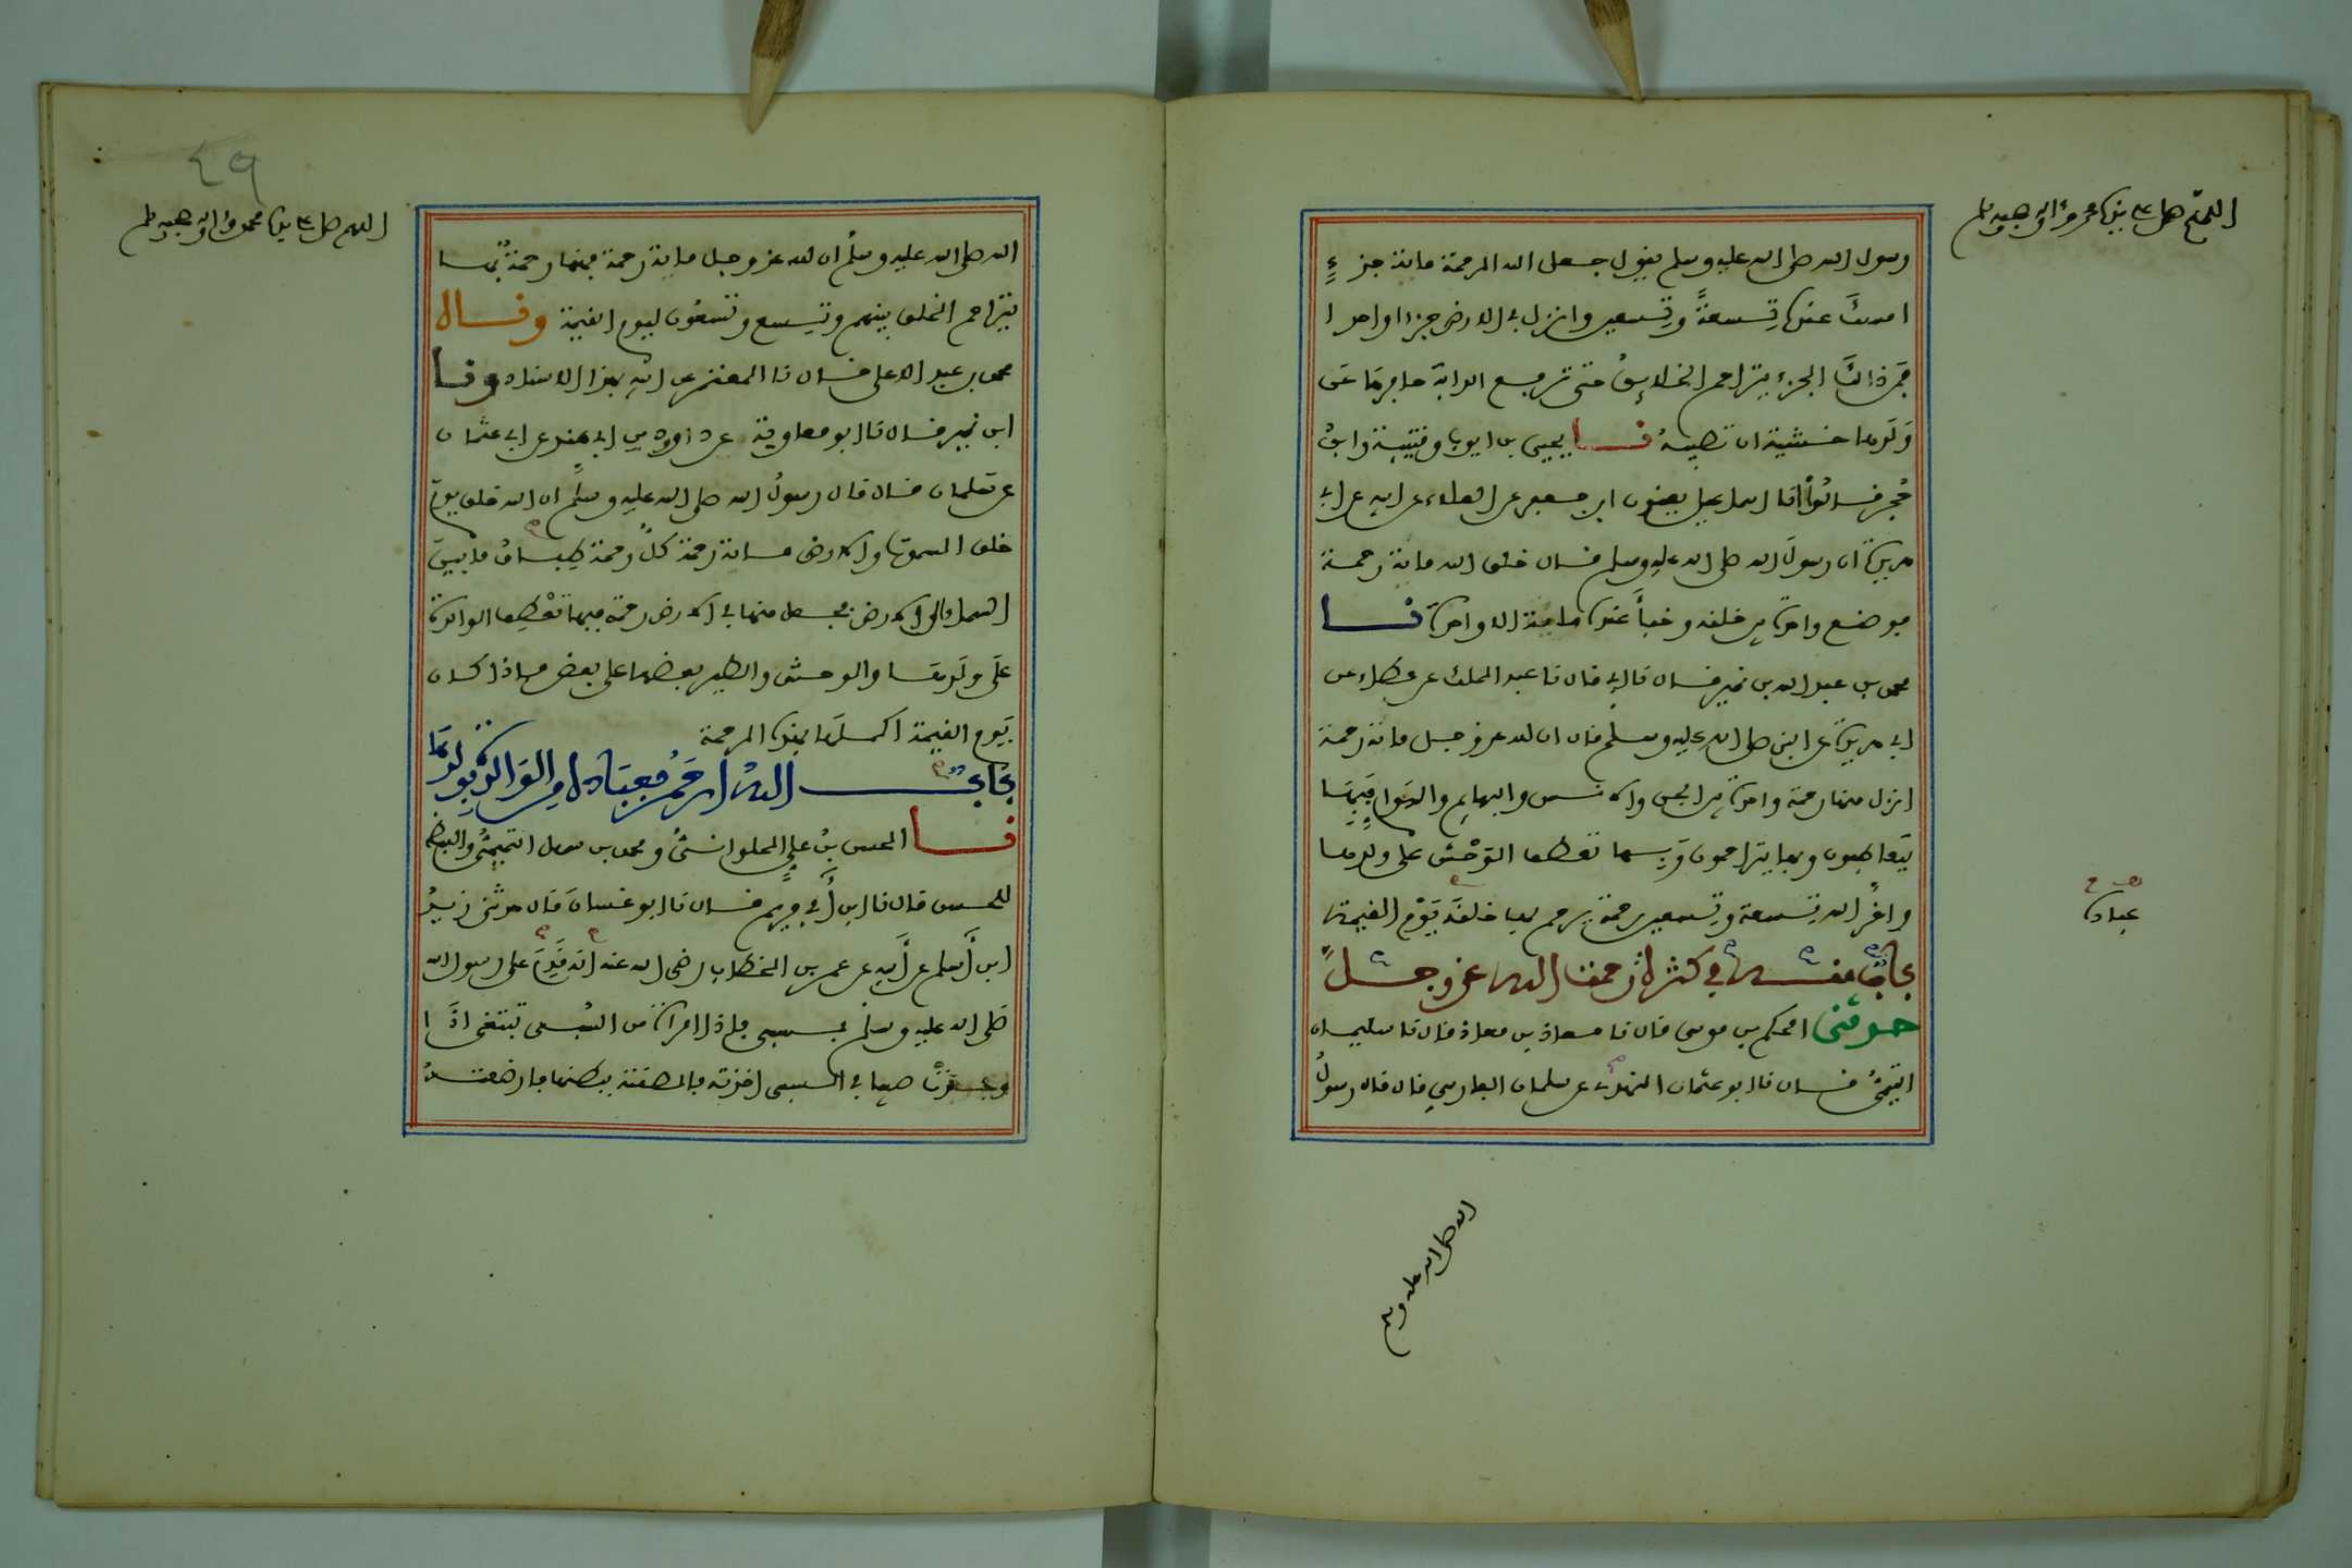 اللهم صل على سيدنا محمد وءاله وصحبه وسلم
رسول الله صلى الله عليه وسلم يقول جعل الله الرحمة مائة جزءٍ
امسك عنده تسعةً وتسعين وانزل في الارض جزءا واحدا
فمن ذالك الجزء يتراحم الخلايق حتى ترفع الدابة حافرها عن
ولدها خشية ان تصيبه نا يحيى بن ايوب وقتيبة وابن
حجر قالوا نا اسماعيل يعنون ابن جعفر عن العلاء عن ابيه عن ابي
هريرة ان رسول الله صلى الله عليه وسلم قال خلق الله مائة رحمة
فوضع واحدة بين خلقه وخبأ عنده مائة الا واحدة نا
محمد بن عبد الله بن نمير قال نا ابي قال نا عبد الملك عن عطاء عن
ابي هريرة عن النبي صلى الله عليه وسلم قال ان لله عز وجل مائة رحمة
انزل منها رحمة واحدة بين الجن والانس والبهايم والهوام فبها
يتعاطفون وبها يتراحمون وبها تعطف الوحش على ولدها
واخر الله تسعة وتسعين رحمة يرحم بها خلقه يوم القيمة
عباده
باب منه في كثرة رحمة الله عز وجل
حدثني الحكم بن موسى قال نا معاذ بن معاذ قال نا سليمان
التيمي قال نا ابو عثمان النهدي عن سلمان الفارسي قال قال رسول
الله صلى الله عليه وسلم
٤٩
اللهم صل على سيدنا محمد وءاله وصحبه وسلم
الله صلى الله عليه وسلم ان لله عز وجل مائة رحمة فمنها رحمة بها
يتراحم الخلق بينهم وتسع وتسعون ليوم القيمة وقال
محمد بن عبد الاعلى قال نا المعتمر عن ابيه بهذا الاسناد ونا
ابن نمير قال نا ابو معاوية عن داوود بن ابي هند عن ابي عثمان
عن سلمان قال قال رسول الله صلى الله عليه وسلم ان الله خلق يوم
خلق السموت والارض مائة رحمة كل رحمة طباق ما بين
السماء الى الارض فجعل منها في الارض رحمة فبها تعطف الوالدة
على ولدها والوحش والطير بعضها على بعض فاذا كان
يوم القيمة اكملها بهذه الرحمة
باب الله ارحم بعباده من الوالدة بولدها
نا الحسن بن علي الحلواني ومحمد بن سهل التميمي واللفظ
للحسن قال نا ابن أبي مريم قال نا ابو غسان قال حدثني زيد
ابن أسلم عن أبيه عن عمر بن الخطاب رضي الله عنه انه قدم على رسول الله
صلى الله عليه وسلم بسبي فاذا امرأة من السبي تبتغي اذا
وجدت صبيا في السبي اخذته فالصقته ببطنها فارضعته